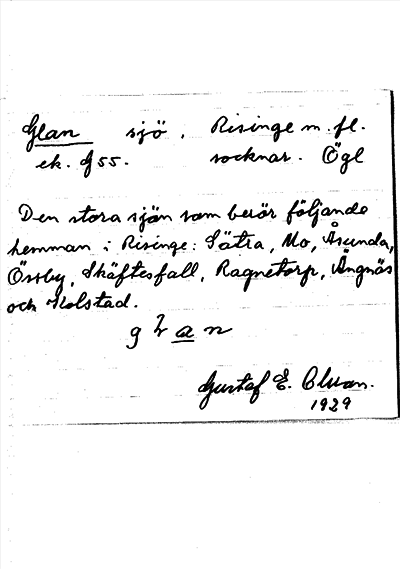 Glan sjö, Risinge m. fl.
ek. G 55. socknar. Ögl
Den stora sjön som berör följande
hemman i Risinge: Sätra, Mo, Åsunda,
Össby, Skäftesfall, Ragnetorp, Ängnäs
och Kolstad.
Gustaf E.
1929